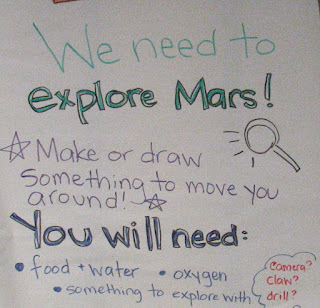 We need to
explore Mars!
☆ Make or draw
something to move you
around! ☆
You will need:
• food + water • oxygen
• something to explore with
camera?
claw?
drill?